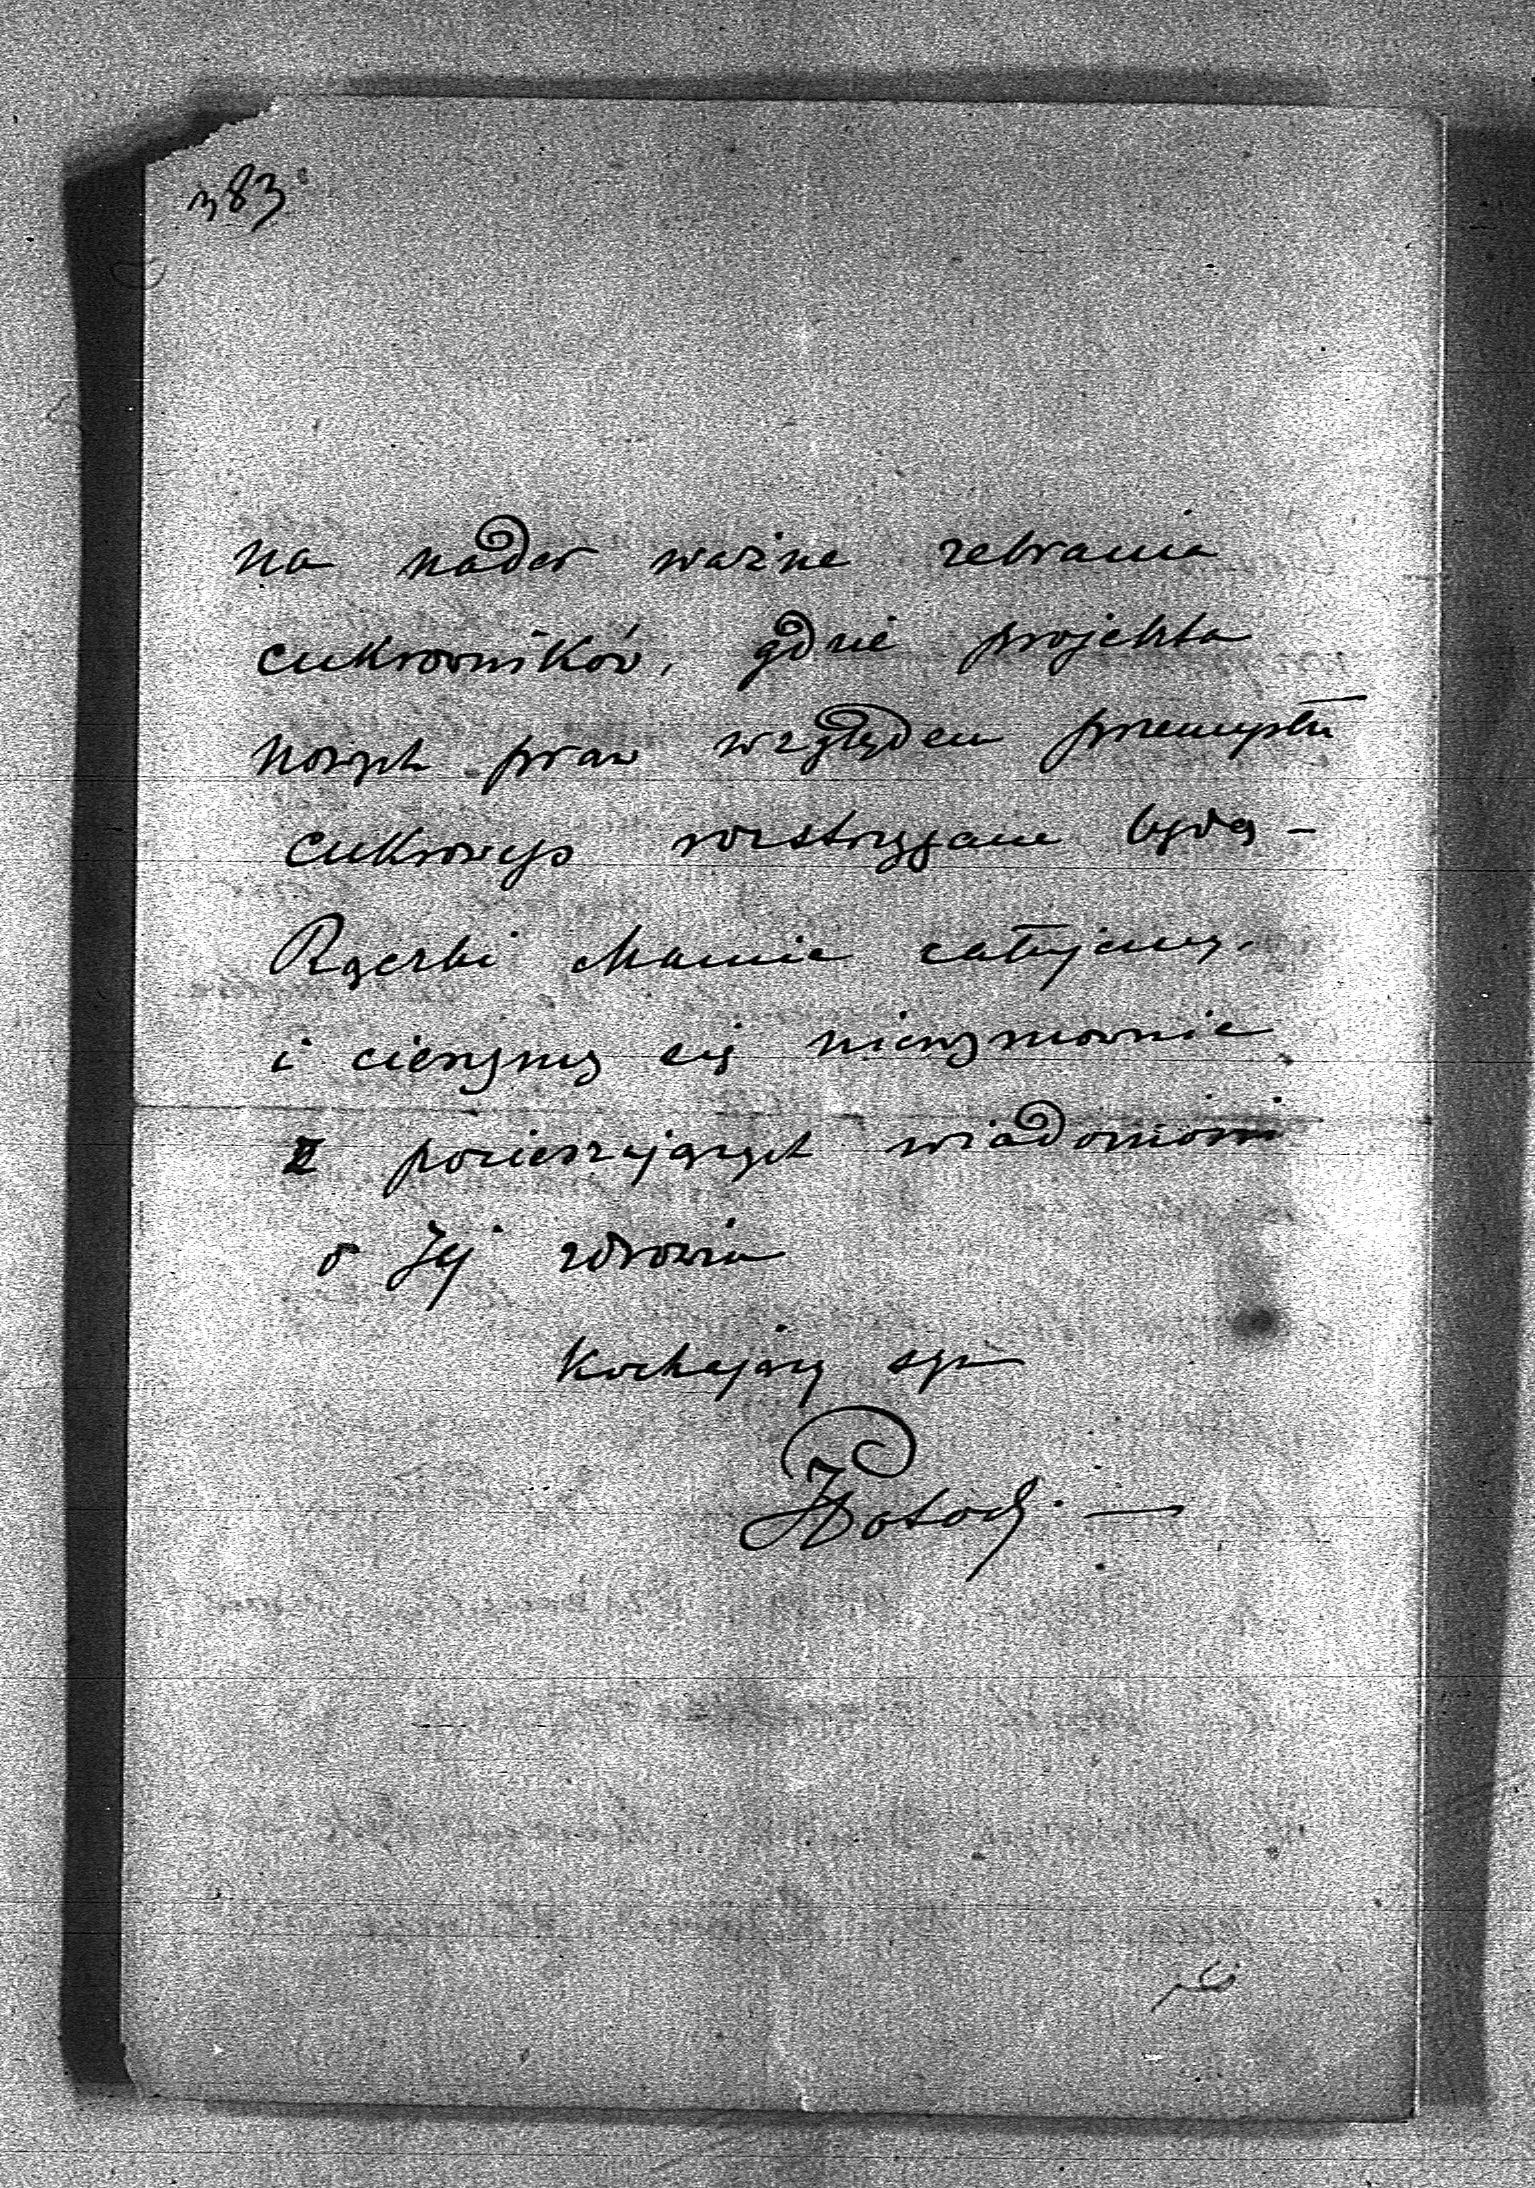 383
na nader ważne zebrania
cukrowników, gdzie projekta
nowych praw względem przemysłu
cukrowego rozstrzygane będą –
Rączki Mamie całujemy,
i cieszymy się niewymownie
z pocieszających wiadomości
o Jej zdrowiu
Kochający syn
JPotocki —